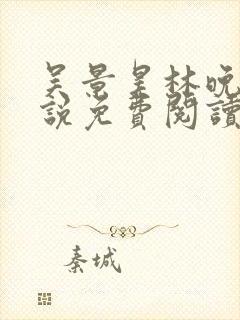 吴景星林晚
說免費閱讀
秦城